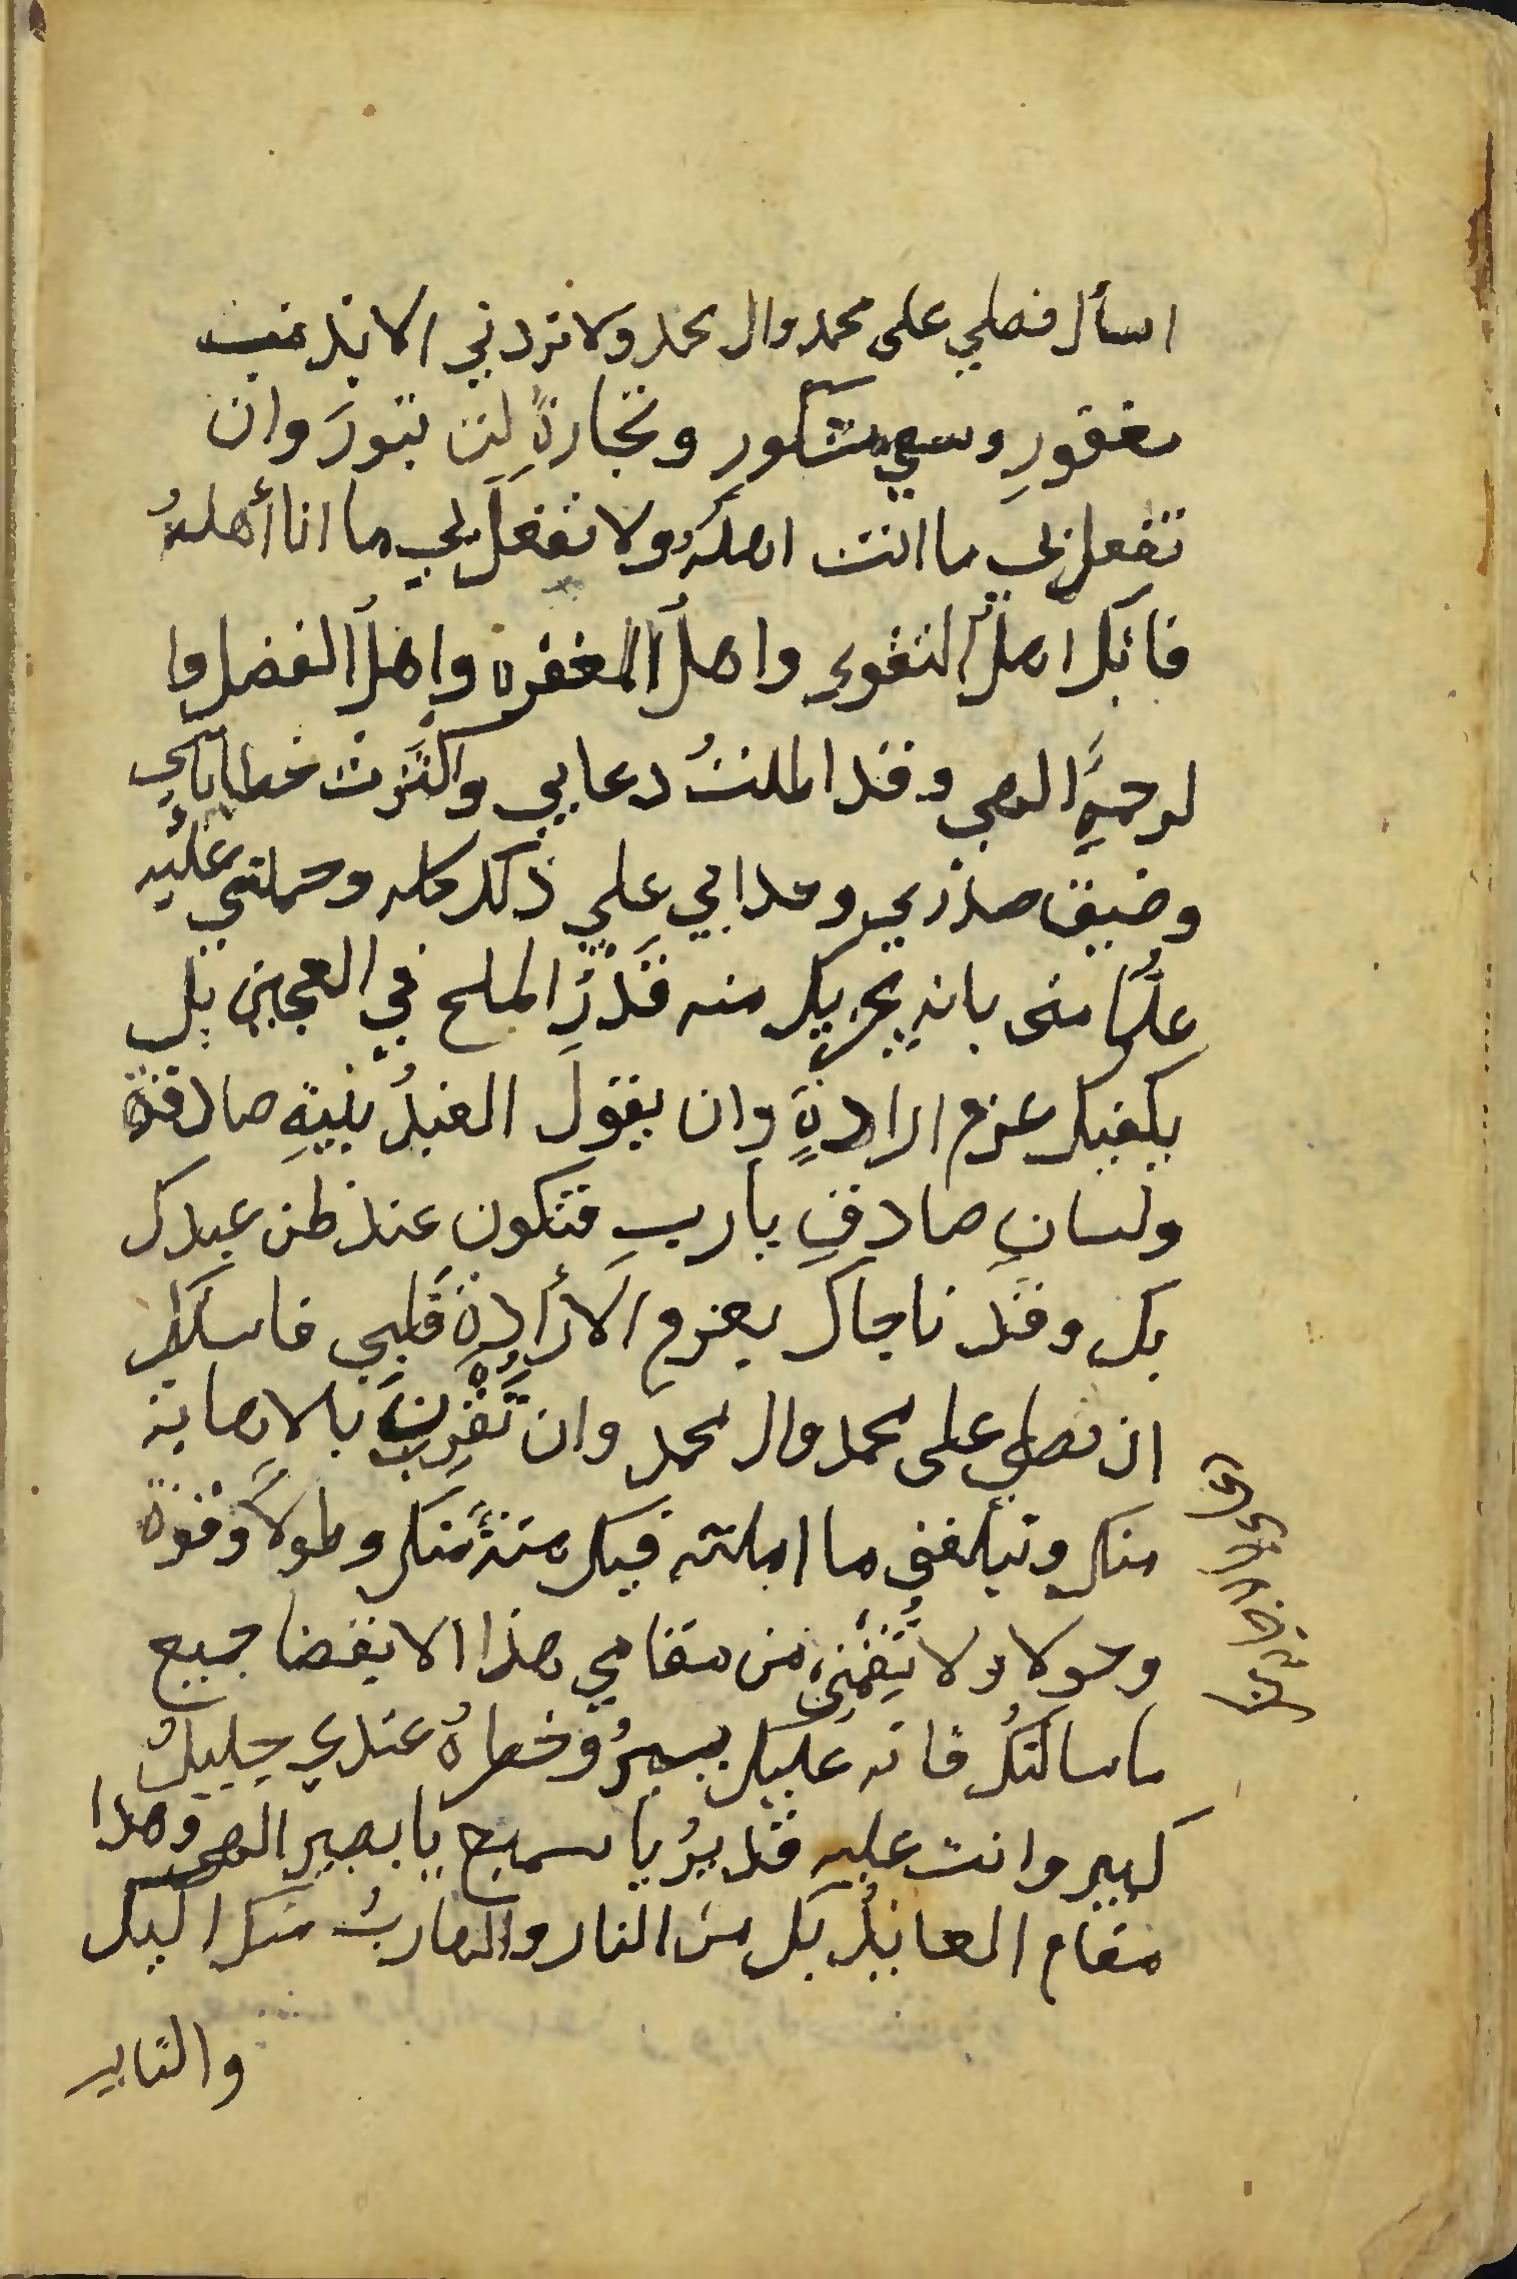 اسأل فصلي على محمد وال محمد ولا تردني الا بذنب
مغفورِ وسعي مشكورِ وتجارةً لن تبورَ وان
تفعل بي ما انت اهلهُ ولا تفعل بي ما انا أهلهُ
فانك اهل التقوى واهلُ المغفره واهلُ الفضل وا
لرحمةِ الهي وقد اطلتُ دعايي واكثرت خطابي
وضيق صدري وحداني علي ذلك كله وحملني عليه
علمًا مني بانه يجزيك منه قَدْرَ الملح في العجين بل
يكفيك عزم ارادةٍ وان يقولَ العبدُ بنيةِ صادقة
ولسانِ صادقِ ياربِ فتكون عند ظن عبدك
بك وقد ناجاك بعزم الأرادة قلبي فاسئلك
ان تصلي على محمد وال محمد وان تُقْرِنَ بالاصابة
منك وتبلغني ما املته فيك منةً منك وطولاً وقوة
وحولا ولا تُقِمْني من مقامي هذا الا بقضا جميع
ما سالتكُ فانه عليك يسيرُ وخطرهُ عندي جليلُ
كبير وانت عليه قديرُ يا سميع يا بصير الهي وهذا
مقام العايذُ بك من النار والهاربُ منك اليك
والتايب